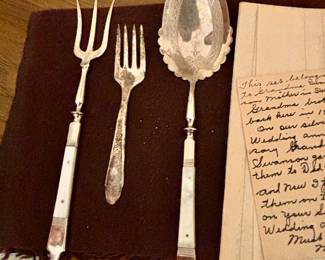 This set belong
to Grandma
son Mother in
Grandma bro
back here in 19
On our silve
Wedding ann
sary Grand
Swanson ga
them to Ded
and now I
them on
on your S
Wedding a
Much